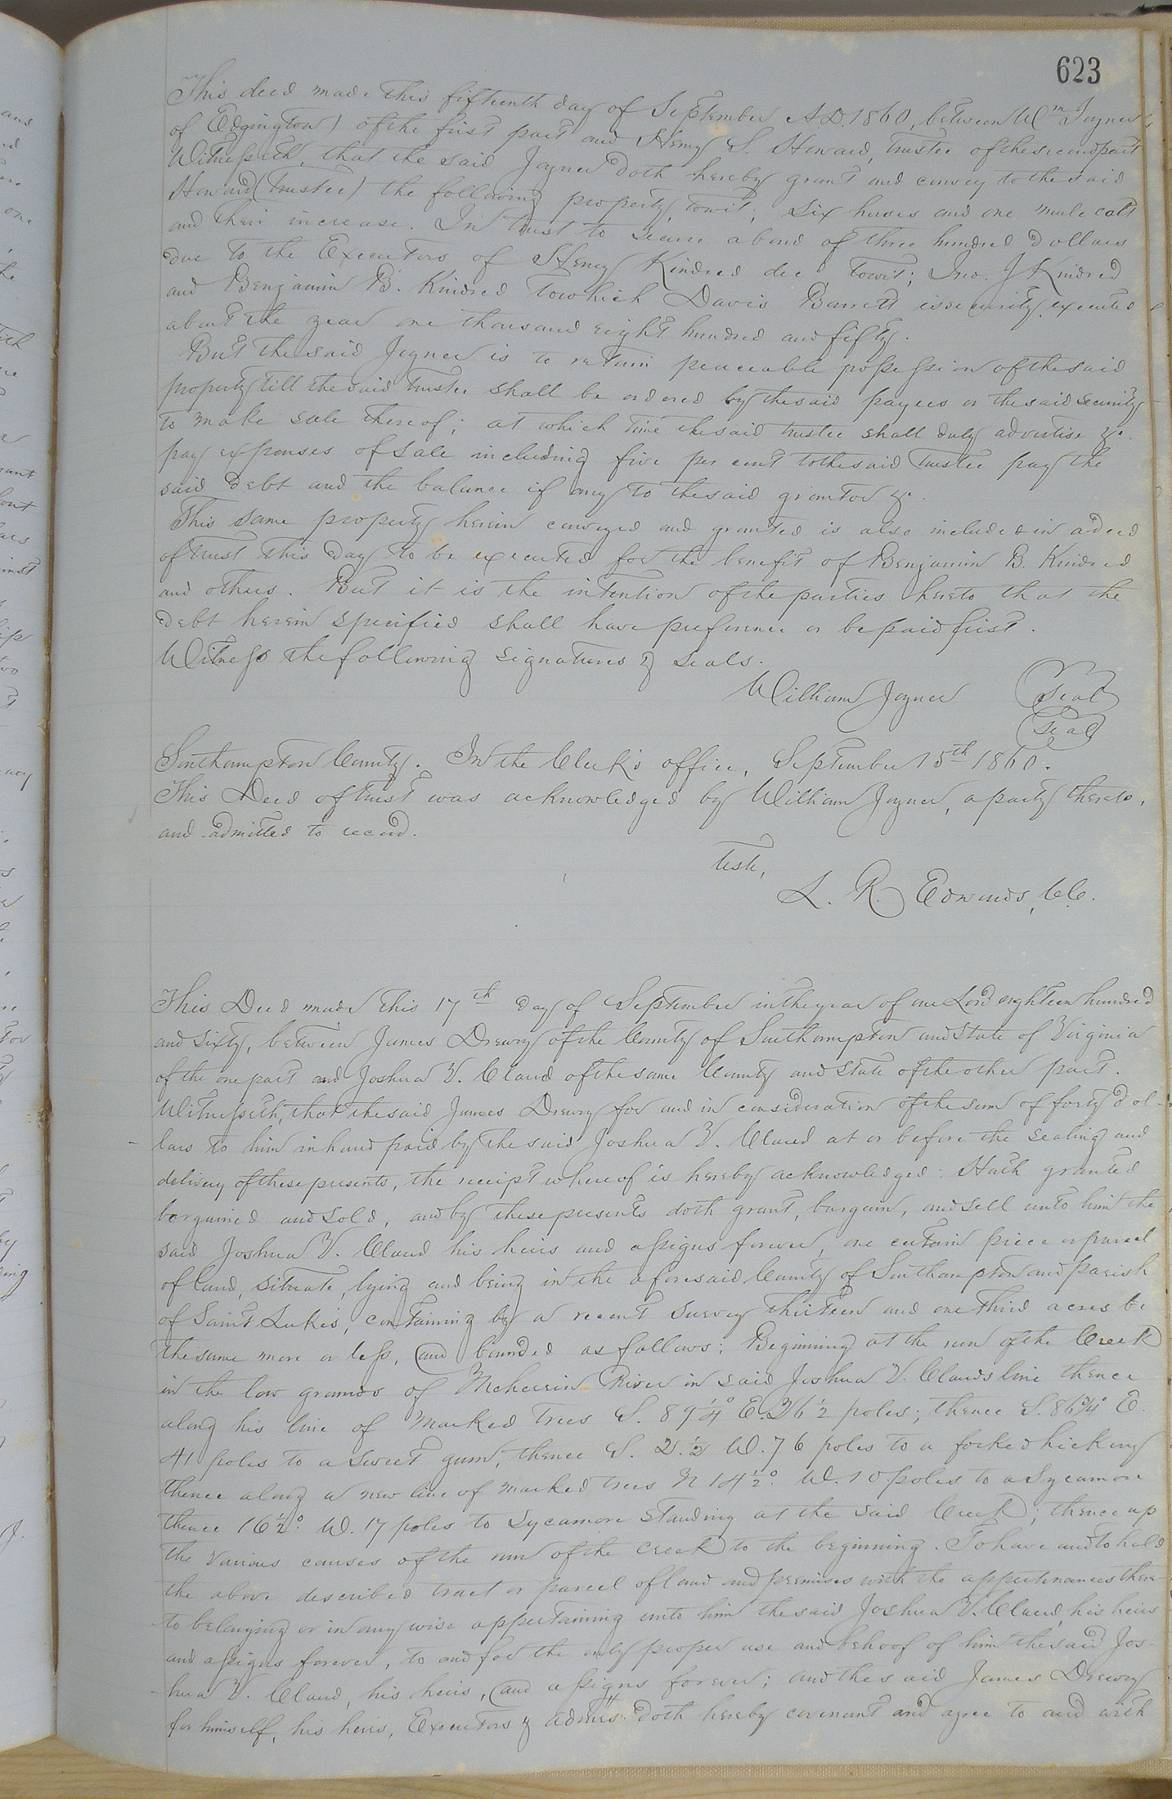 623
This deed made this fifteenth day of September A.D. 1860, between Wm Joyner
of Edgington) of the first part and Henry S. Howard, trustee of the second part
Witnesseth, that the said Joyner doth hereby grant and convey to the said
Howard (trustee) the following property, towit; six horses and one mule colt
and their increase. In trust to secure a bond of three hundred dollars
due to the Executors of Henry Kindred decd towit; Jno. J Kindred
and Benjamin B. Kindred to which Davis Barrett is security executed
about the year one thousand eight hundred and fifty.
But the said Joyner is to retain peaceable possession of the said
property till the said trustee shall be ordered by the said payees or the said security
to make sale thereof; at which time the said trustee shall duly advertise &c.
pay expenses of sale including five per cent to the said trustee pay the
said debt and the balance if any to the said grantor &c.
This same property herein conveyed and granted is also included in a deed
of trust this day to be executed for the benefit of Benjamin B. Kindred
and others. But it is the intention of the parties hereto that the
debt herein specified shall have preference or be paid first.
Witness the following signatures & seals.
William Joyner Seal
Seal
Southampton County. In the Clerk's office, September 15th 1860.
This Deed of trust was acknowledged by William Joyner, a party thereto,
and admitted to record.
Teste,
L. R. Edwards, C.C.
This Deed made this 17th day of September in the year of our Lord eighteen hundred
and sixty, between James Drewry of the County of Southampton and State of Virginia
of the one part and Joshua V. Claud of the same County and State of the other part.
Witnesseth, that the said James Drewry for and in consideration of the sum of forty dol-
lars to him in hand paid by the said Joshua V. Claud at or before the sealing and
delivery of these presents, the receipt whereof is hereby acknowledged: Hath granted
bargained and sold, and by these presents doth grant, bargain, and sell unto him the
said Joshua V. Claud his heirs and assigns forever, one certain piece or parcel
of land, situate, lying and being in the aforesaid County of Southampton and parish
of Saint Luke's, containing by a recent survey thirteen and one third acres be
the same more or less, and bounded as follows; Beginning at the run of the Creek
in the low grounds of Meherrin River in said Joshua V. Clauds line thence
along his line of marked trees S. 89¼° E. 26½ poles; thence S. 86¾° E.
41 poles to a sweet gum, thence S. 2.½ W. 76 poles to a forked hickory
thence along a new line of marked trees N 14½° W. 10 poles to a Sycamore
thence 16½° W. 17 poles to Sycamore standing at the said Creek; thence up
the various causes of the run of the creek to the beginning. To have and to hold
the above described tract or parcel of land and premises with the appurtenances there-
to belonging or in any wise appertaining unto him the said Joshua V. Claud, his heirs
and assigns forever, to and for the only proper use and behoof of him the said Jos-
hua V. Claud, his heirs, and assigns forever; and the said James Drewry
for himself, his heirs, Executors & admrs doth hereby covenant and agree to and with